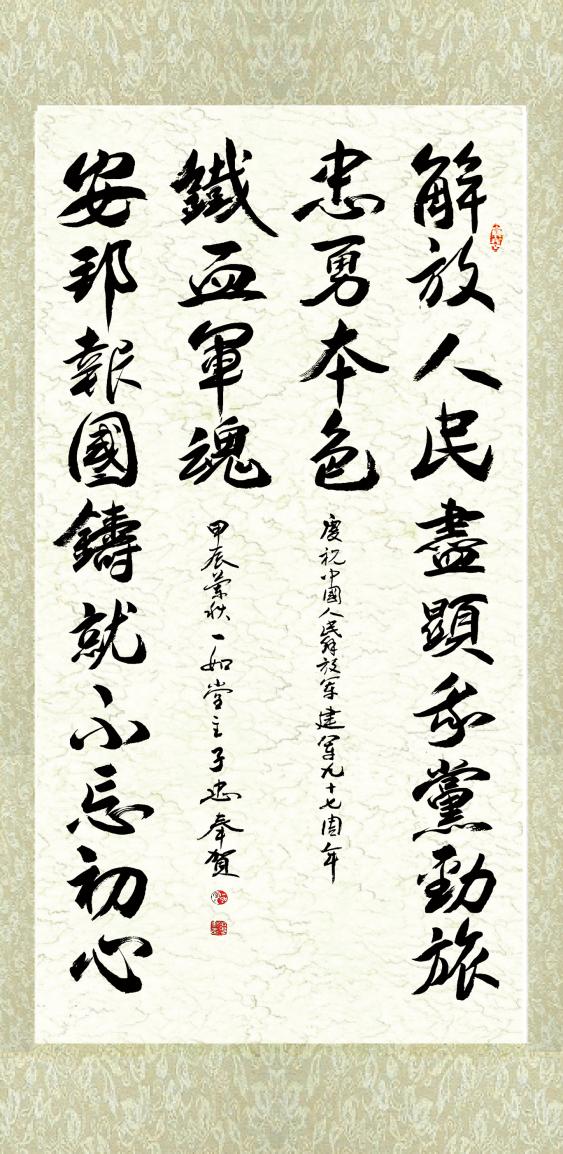 解放人民盡顯我黨勁旅
忠勇本色
安邦報國鑄就不忘初心
鐵血軍魂
慶祝中國人民解放军建軍九十七周年
甲辰蘭秋一如堂主子忠奉賀